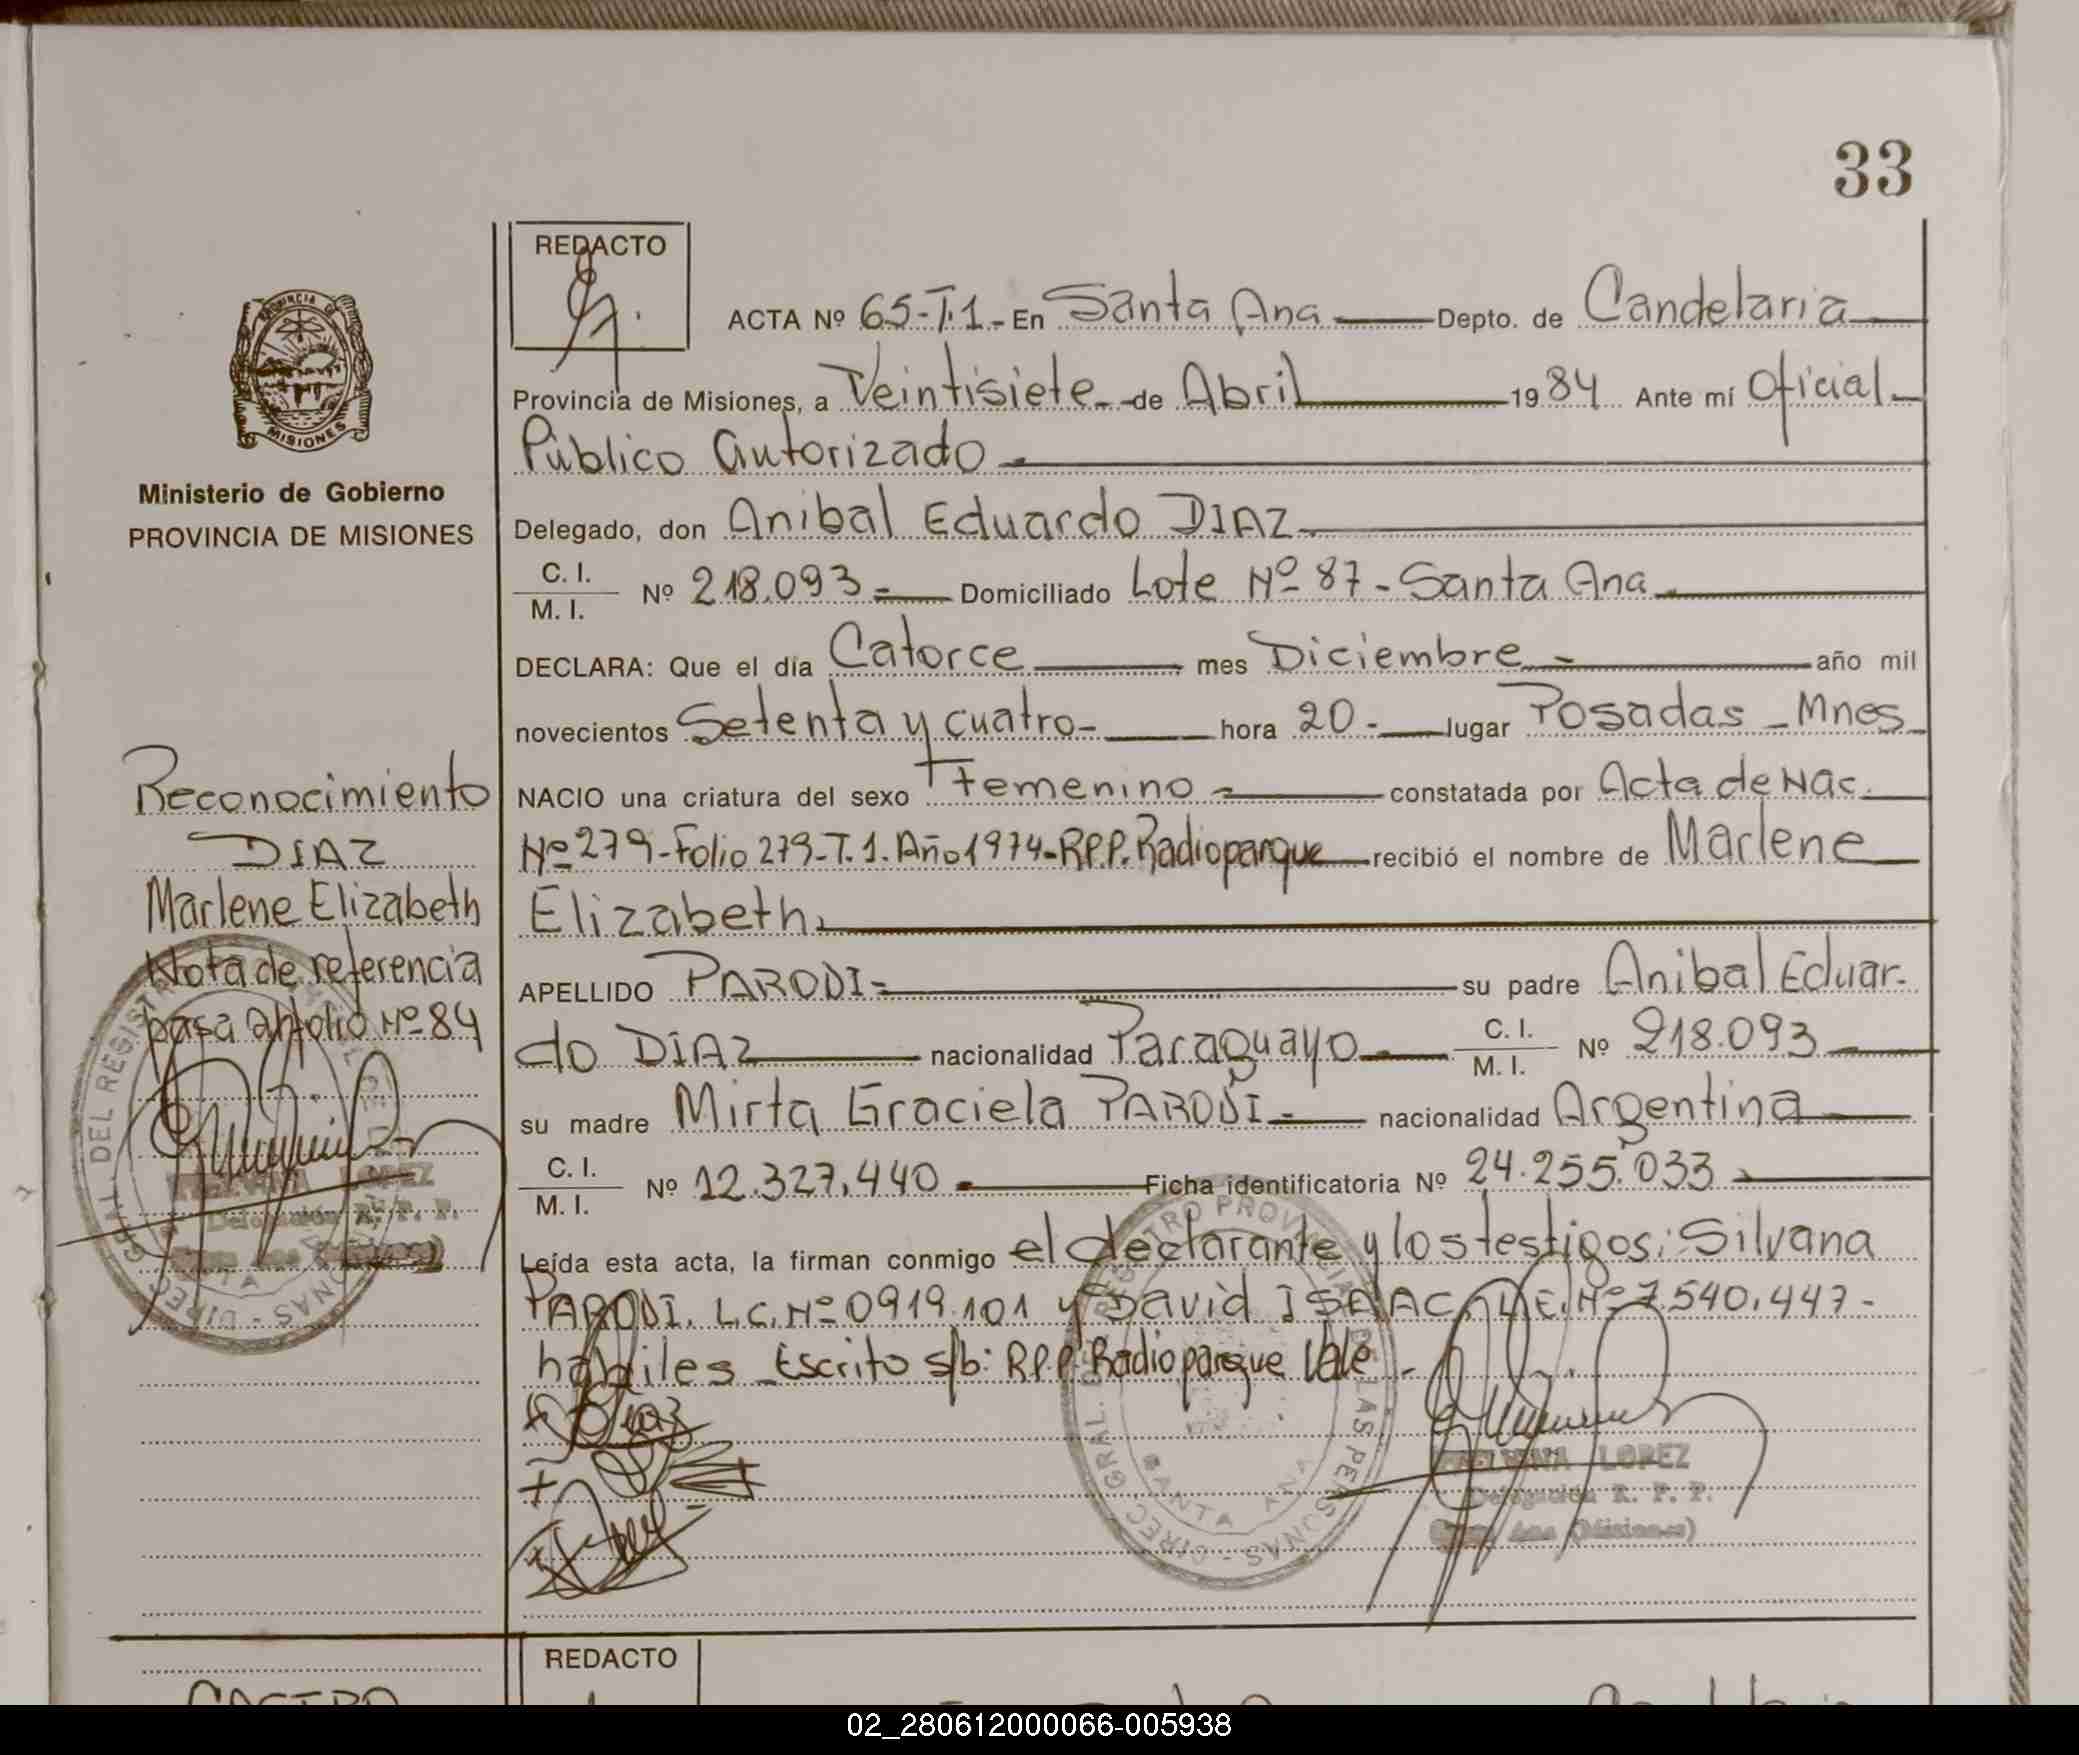 33
REDACTO
ACTA Nº 65-T.1.- En Santa Ana Depto. de Candelaria
Provincia de Misiones, a Veintisiete de Abril 1984 Ante mí Oficial
Público Autorizado
Delegado, don Anibal Eduardo DIAZ
C. I.
M. I. Nº 218.093 Domiciliado Lote Nº 87 - Santa Ana
DECLARA: Que el día Catorce mes Diciembre año mil
novecientos Setenta y cuatro hora 20 lugar Posadas - Mnes
NACIO una criatura del sexo Femenino constatada por Acta de Nac.
Nº 279-Folio 279-T.1. Año 1974-R.P.P. Radioparque recibió el nombre de Marlene
Elizabeth
APELLIDO PARODI su padre Anibal Eduar-
do DIAZ nacionalidad Paraguayo C. I.
M. I. Nº 218.093
su madre Mirta Graciela PARODI nacionalidad Argentina
C. I.
M. I. Nº 12.327.440 Ficha identificatoria Nº 24.255.033
Leída esta acta, la firman conmigo el declarante y los testigos: Silvana
PARODI. L.C. Nº 0919.101 y David ISAAC, L.E. Nº 7.540.447-
habiles Escrito s/b: R.P.P. Radioparque Vale
PROVINCIA DE
MISIONES
Ministerio de Gobierno
PROVINCIA DE MISIONES
Reconocimiento
DIAZ
Marlene Elizabeth
Nota de referencia
pasa al folio Nº 84
LOPEZ
Delegación R. P. P.
Santa Ana (Misiones)
LOPEZ
Delegación R. P. P.
Santa Ana (Misiones)
SANTA ANA
REDACTO
CASTRO
02_280612000066-005938